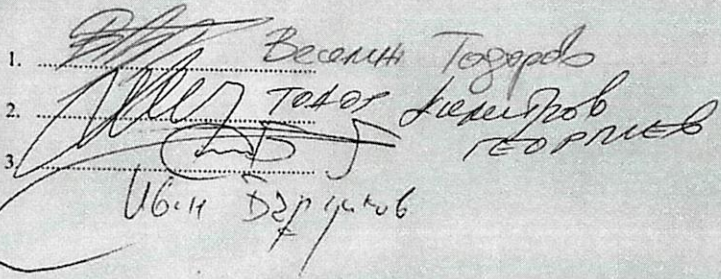 1. Веселин Тодоров
2. ТОДОР Димитров
ГЕОРГИЕВ
3.
Иван